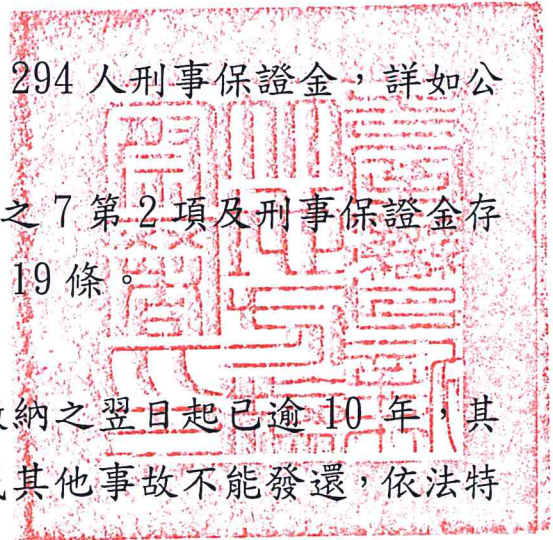 294 人刑事保證金，詳如公
之 7 第 2 項及刑事保證金存
19 條。
納之翌日起已逾 10 年，其
其他事故不能發還，依法特